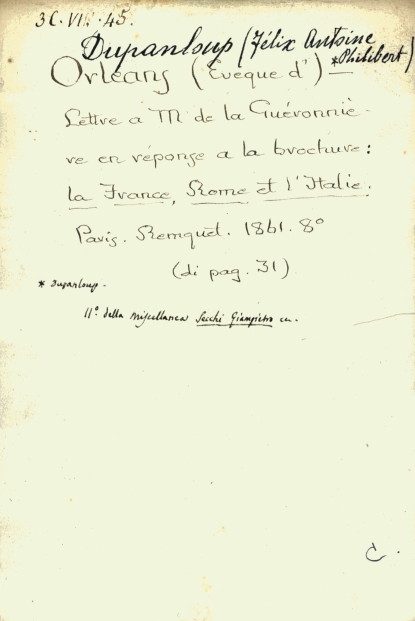 3 C. VII. 45.
Dupanloup (Félix Antoine
*Philibert)
Orléans (Eveque d') —
Lettre a M de la Guéronniè-
re en réponse a la brochure:
la France, Rome et l'Italie.
Paris. Remquet. 1861. 8º
(di pag. 31)
* Dupanloup.
11º della miscellanea Secchi Giampietro
C.